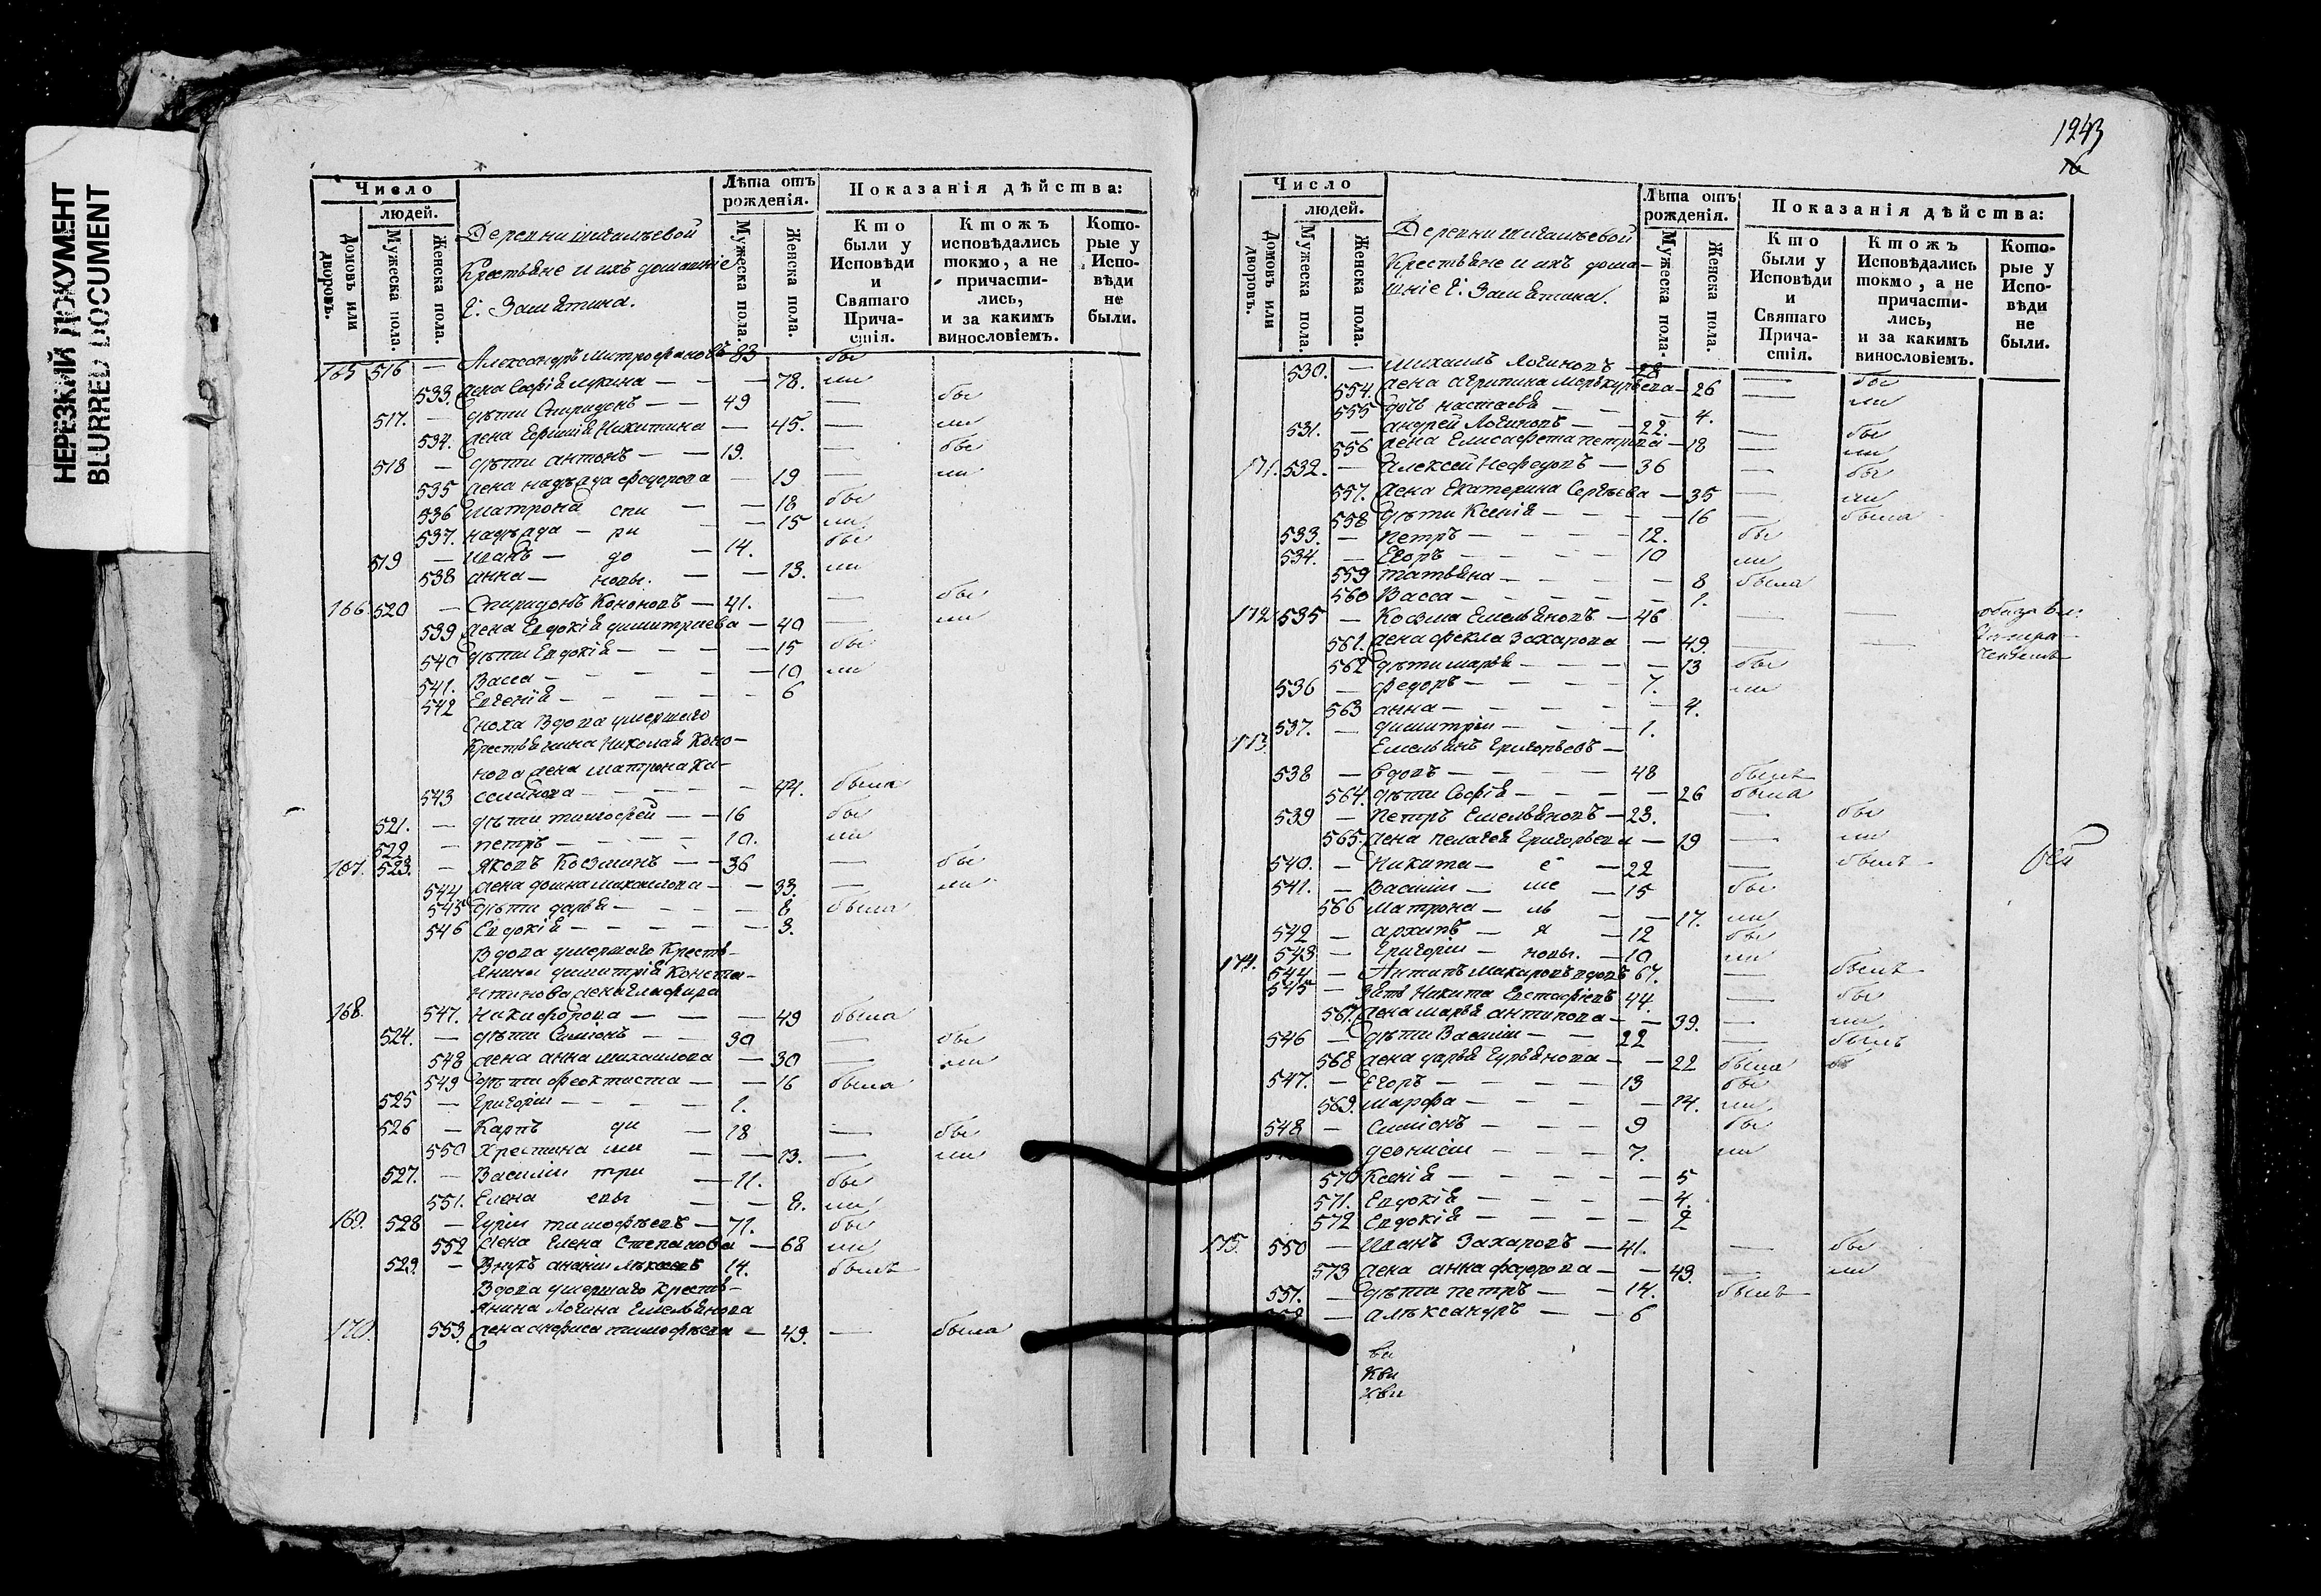 НЕРЕЗКИЙ ДОКУМЕНТ
BLURRED DOCUMENT
Число
людей.
Домовъ или дворовъ.
Мужеска пола.
Женска пола.
Деревни
Крестьяне и ихъ домашніе
Г. Замятина.
Лѣта отъ рожденія.
Мужеска пола.
Женска пола.
Показанія дѣйства:
Кто были у Исповѣди и Святаго Причастія.
Ктожъ исповѣдались токмо, а не причастились, и за какимъ винословіемъ.
Которые у Исповѣди не были.
165 516 — Александръ Митрофановъ 83 бы
533. жена Софія Лукина — — — 78. ли
517. — дѣти Спиридонъ — — 49 — бы
534. жена Евфимія Никитина — 45. — ли
518 — дѣти Антонъ — — 19. — бы
535 жена Надежда Федорова — 19 — ли
536 Матрона спи — — 18 бы
537. Надежда — ри — 15 ли
519 — Иванъ — до — 14. бы
538 Анна — новы. — — 13. ли
166 520 — Спиридонъ Кононовъ — 41. — бы
539 жена Евдокія Димитриева — 40 — ли
540 дѣти Евдокія — — — — 15 бы
541. Васса — — — — — 10 ли
542 Евгенія — — — — — 6
Сноха Вдова умершаго
Крестьянина Николая Коно-
нова жена Матрона
543 — — — — 44. была
521. — дѣти Тимофей — — 16 бы
522 — Петръ — — — — 10. ли
167. 523. — Яковъ Козминъ — — 36 — бы
544 жена Домна Михаилова — — 33. — ли
545 дѣти Дарья — — — — 8 была
546 Евдокія — — — — — 3.
Вдова умершаго Кресть-
янина Димитрія Конста-
нтинова жена Глафира
168. 547. Никифорова — — — 49 была
524. — дѣти Симіонъ — 30 — бы
548 жена Анна Михаилова — 30 — ли
549 дѣти Феоктиста — — 16 была
525 — Григоріи — — — — 1.
526 — Карпъ ди — 18 — бы
550 Христина ми — — 13. — ли
527. — Василіи три — 11. бы
551. Елена евы — — 8. ли
169. 528 — Гуріи Тимофѣевъ — 71. бы
552 жена Елена Степанова — 68 ли
529. — Внукъ Ананіи 14. былъ
Вдова умершаго Кресть-
янина Логина Емельянова
170. 553. жена Анфиса Тимофѣева — 49. — была
1243
Число
людей.
Домовъ или дворовъ.
Мужеска пола.
Женска пола.
Деревни
Крестьяне и ихъ дома-
шніе Г. Замятина.
Лѣта отъ рожденія.
Мужеска пола.
Женска пола.
Показанія дѣйства:
Кто были у Исповѣди и Святаго Причастія.
Ктожъ Исповѣдались токмо, а не причастились, и за какимъ винословіемъ.
Которые у Исповѣди не были.
530. — Михаилъ Логиновъ — 28 — бы
554. жена Агрипина Меркурьева — 26 — ли
555 дочь — — — 4.
531. — Андрей Логиновъ — — 22. — бы
556 жена Елисафета Петрова — 18 — ли
171. 532. — Алексей Нефедовъ — 36 — бы
557. жена Екатерина Сергѣева — 35 — ли
558 дѣти Ксенія — — — — 16 — была
533. — Петръ — — — — 12. бы
534. — Егоръ — — — — 10 ли
559 Татьяна — — — — 8 была
560 Васса — — — — — 1.
172 535 — Козма Емельяновъ — 46 — —
561. жена Фекла Захарова — 49. — —
562 дѣти Марья — — — — 13 бы
536 — Федоръ — — — — 7. ли
563 Анна — — — — — 4.
537. — Димитріи — — — 1.
173. Емельянъ Григорьевъ —
538 — Вдовъ — — — — 48 былъ
564. дѣти Софія — — — — 26 была
539 — Петръ Емельяновъ — 23. — бы
565. жена Пелагея Григорьева — 19 — ли
540. — Никита — е — 22 — былъ
541. — Василіи — ме — 15 бы
566 Матрона — ль — — 17. ли
542 — Архипъ — я — 12 бы
543 — Григоріи — новы. — 10 ли
174. 544 — Антипъ Макаровъ вдовъ 67. — былъ
545 — Зять Никита Евстафіевъ 44. — бы
567. жена Марья Антипова — — 39. — ли
546 — дѣти Василіи — — 22 — былъ
568 жена Дарья Гурьянова — — 22 была
547. — Егоръ — — — — 13 бы
569. Марфа — — — — 14. ли
548 — Симіонъ — — — 9 бы
Деонисіи — — — 7. ли
570 Ксенія — — — — — 5
571. Евдокія — — — — — 4.
572 Евдокія — — — — 2
175. 550 — Иванъ Захаровъ — 41. — бы
573 жена Анна Федорова — — 43. — ли
551. — дѣти Петръ — — 14. былъ
— Алѣксандръ — — 6